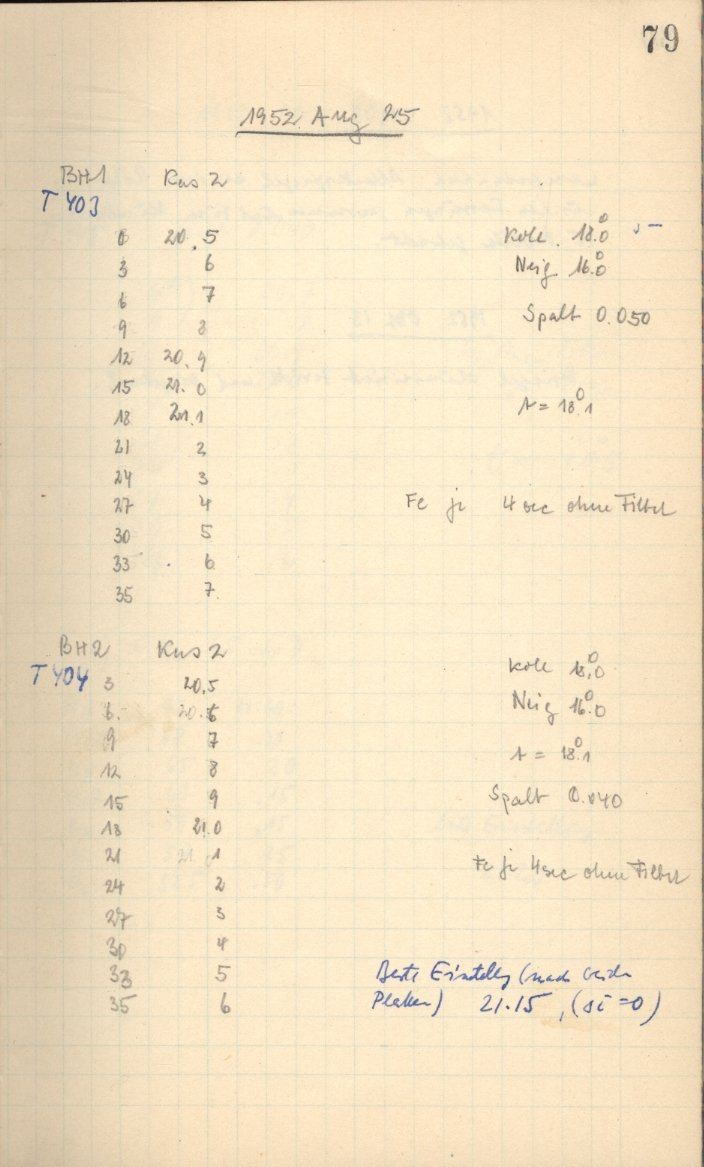 79
1952 Aug 25
BH1 Kas 2
T 403
0 20.5 Koll. 18.0°
3 6 Neig 16.0°
6 7
9 8 Spalt 0.050
12 20.9
15 21.0
18 21.1 t = 18.1°
21 2
24 3
27 4 Fe je 4 sec ohne Filter
30 5
33 6
35 7
BH2 Kas 2
T 404
3 20.5 Koll 18.0°
6 20.6 Neig 16.0°
9 7
12 8 t = 18.1°
15 9 Spalt 0.040
18 21.0
21 21.1 Fe je 4 sec ohne Filter
24 2
27 3
30 4
33 5 Beste Einstellg (nach beiden
35 6 Platten) 21.15, (si = 0)